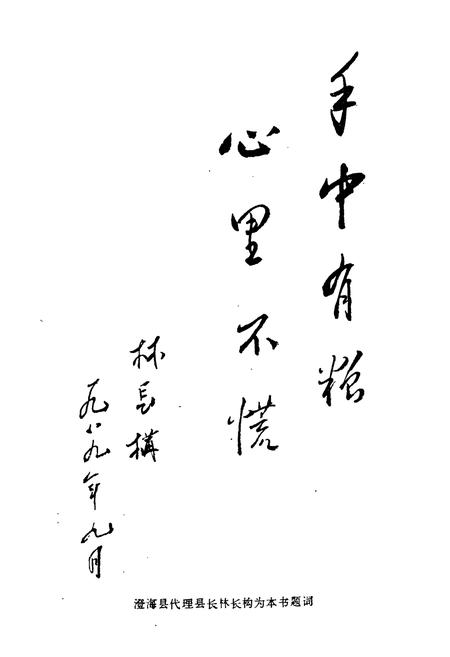 手中有粮
心里不慌
林长構
一九八九年九月
澄海县代理县长林长构为本书题词